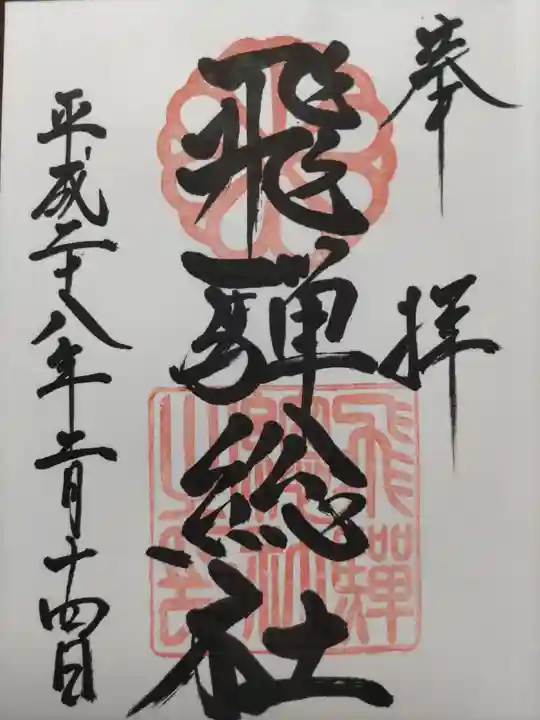 奉拝
飛騨総社
平成二十八年二月十四日